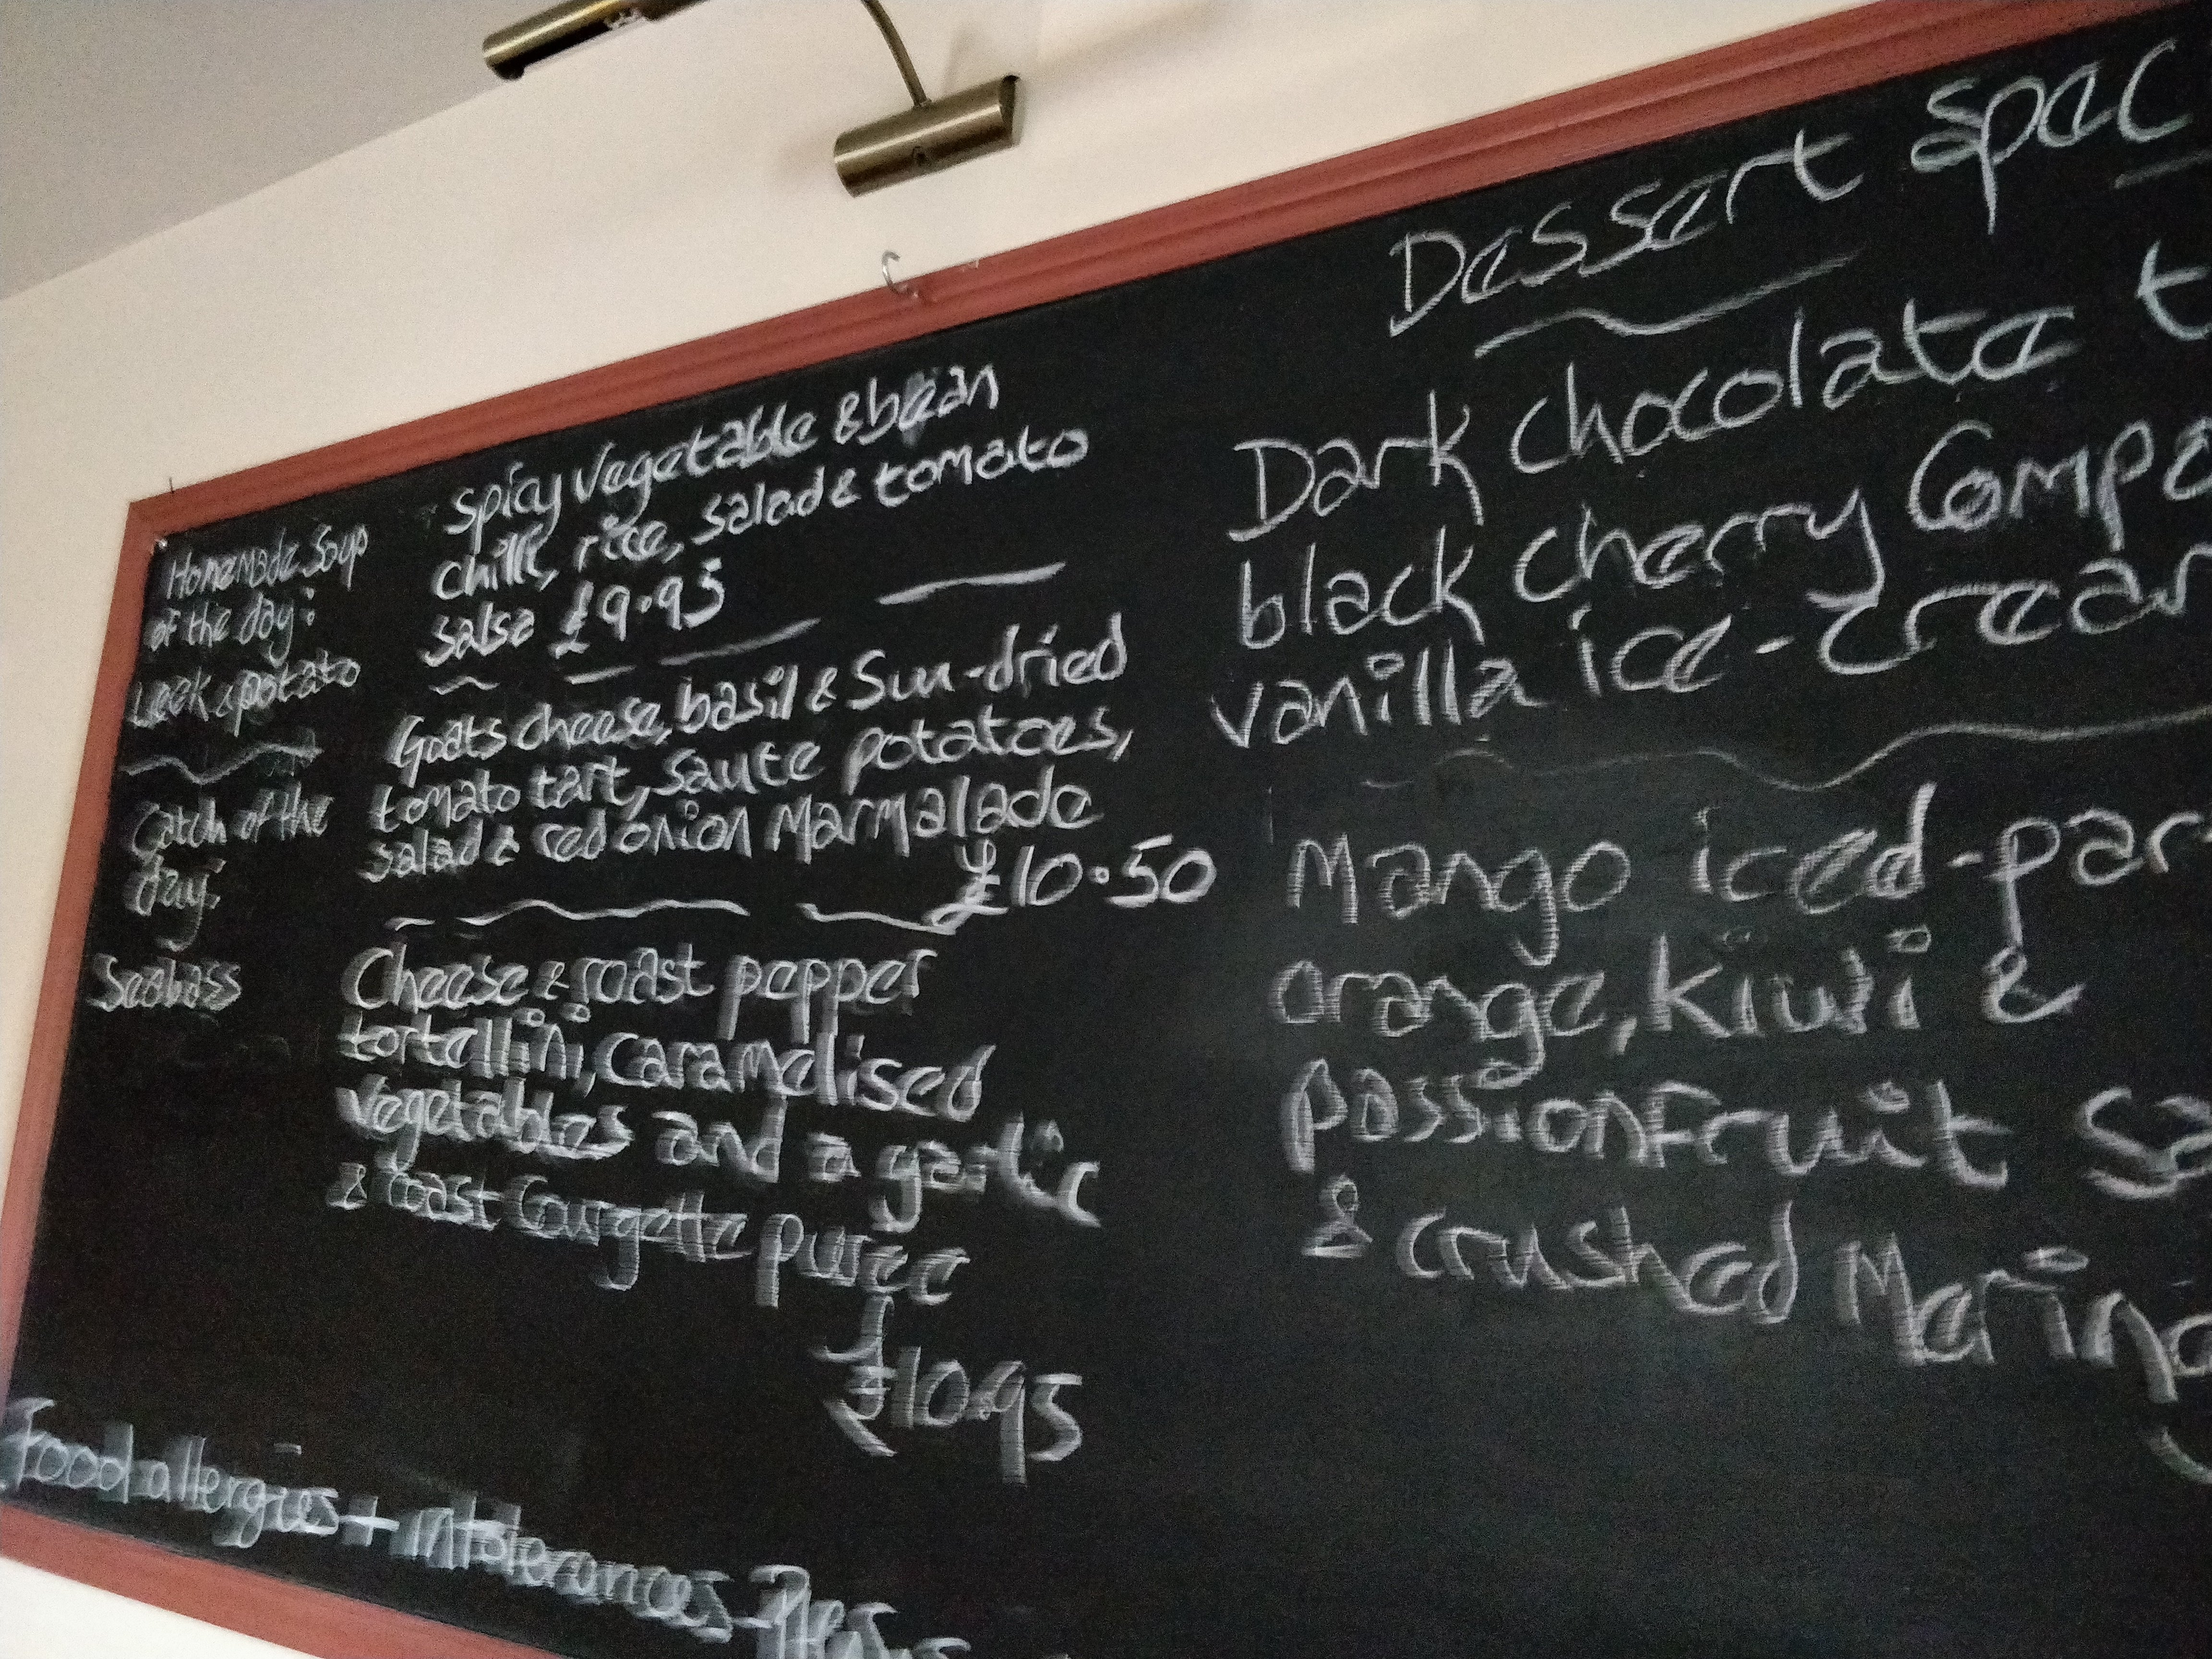 Homemade Soup
of the day:
Leek & potato
Catch of the
day:
Seabass
Spicy vegetable & bean
chilli, rice, salad & tomato
salsa £9.95
Goats cheese, basil & Sun-dried
tomato tart, saute potatoes,
salad & red onion Marmalade
£10.50
Cheese & roast pepper
tortellini, caramelised
vegetables and a garlic
& roast Courgette puree
£10.95
Dessert Spec
Dark chocolate t
black cherry Compo
vanilla ice-crea
Mango iced-par
orange, kiwi &
passionfruit sa
& crushed Mering
Food allergies + intolerances - Pleas